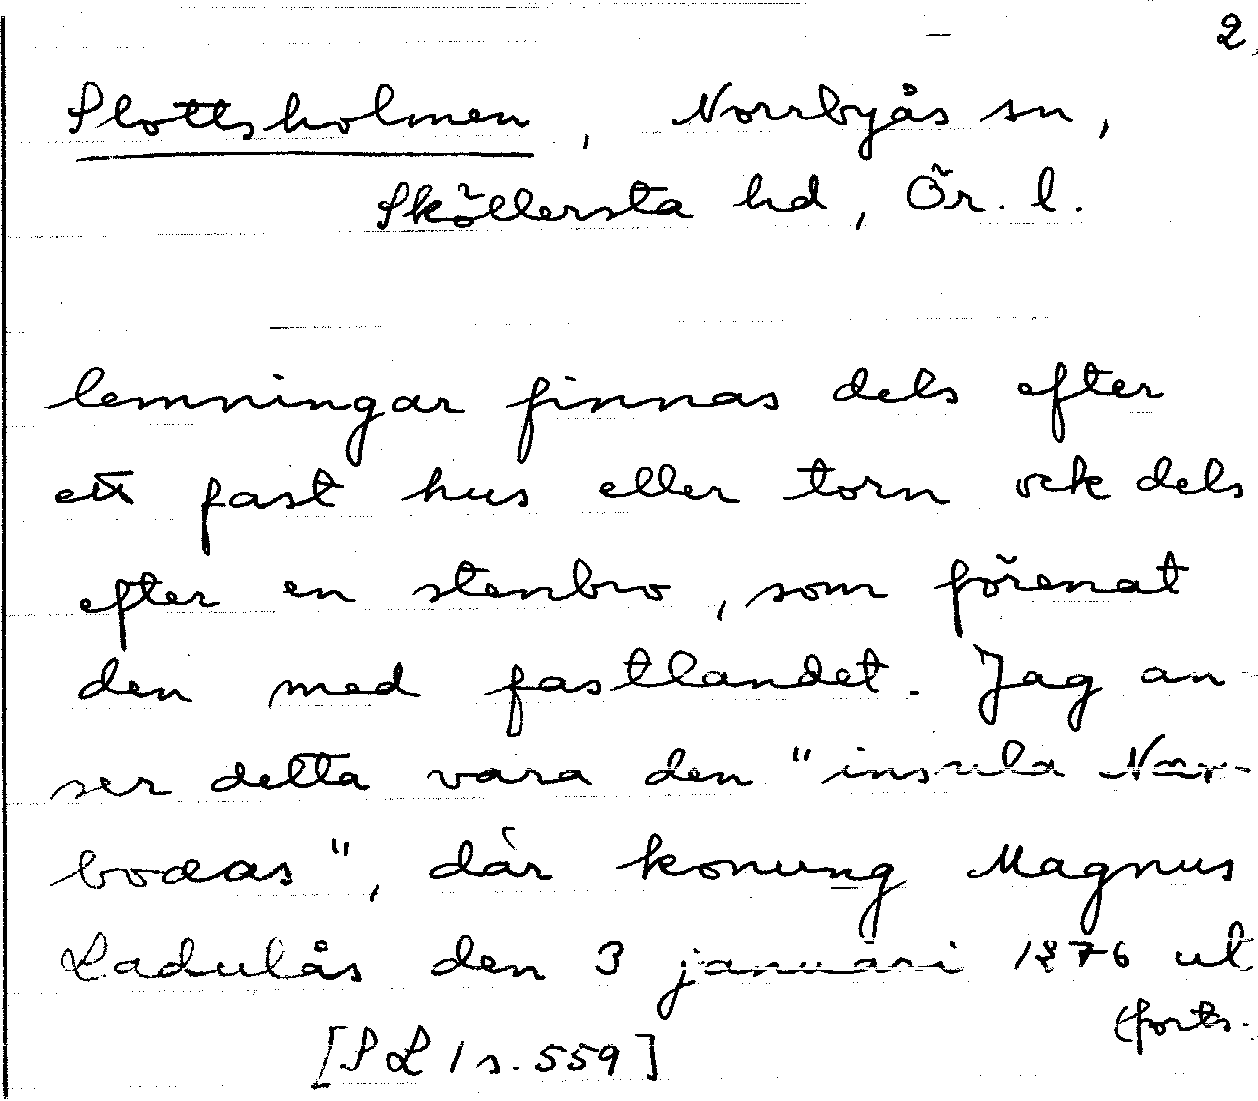 2
Slottsholmen, Norrbyås sn,
Sköllersta hd, Ör. l.
lemningar finnas dels efter
ett fast hus eller torn ock dels
efter en stenbro, som förenat
den med fastlandet. Jag an-
ser detta vara den "insula Nær-
boaas", där konung Magnus
Ladulås den 3 januari 1276 ut
(forts.
[SL 1 s. 559]